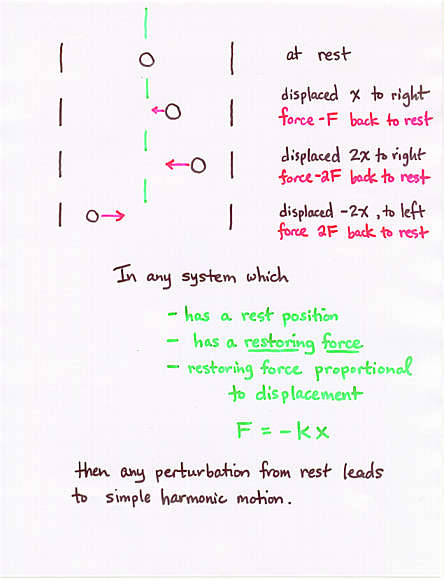 at rest
displaced x to right
force -F back to rest
displaced 2x to right
force -2F back to rest
displaced -2x, to left
force 2F back to rest
In any system which
- has a rest position
- has a restoring force
- restoring force proportional
to displacement
F = -kx
then any perturbation from rest leads
to simple harmonic motion.